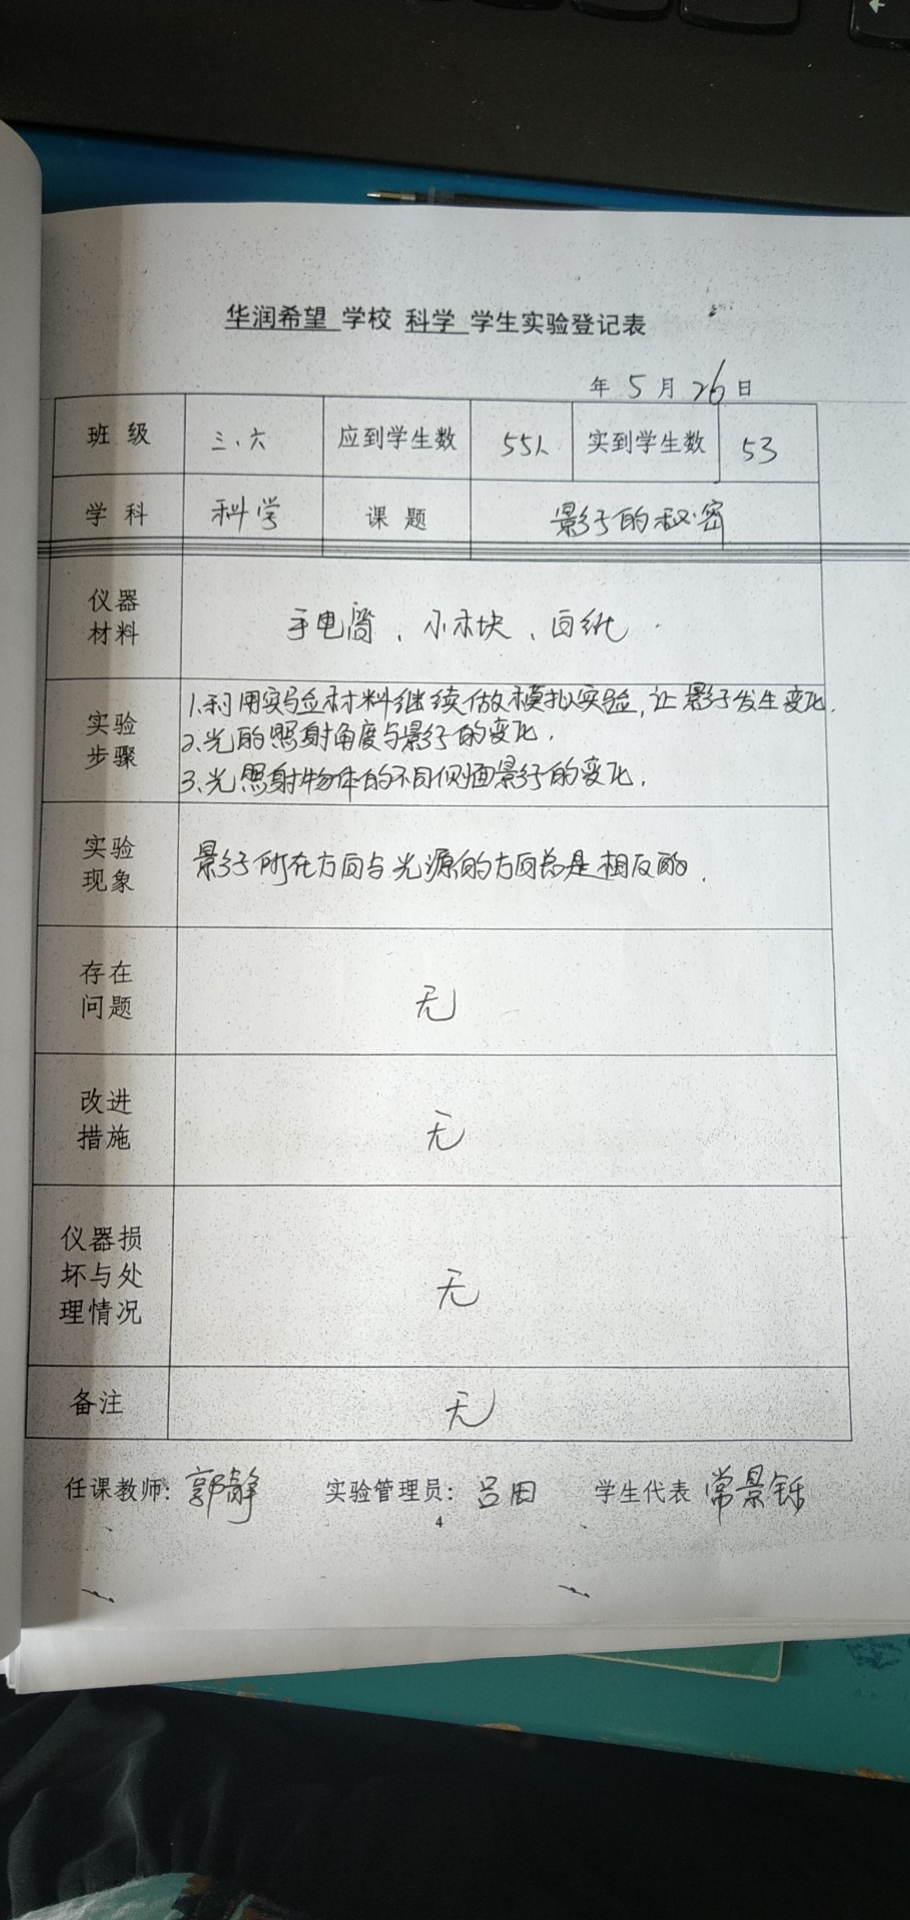 华润希望 学校 科学 学生实验登记表
年 5 月 26 日
班 级 三、六 应到学生数 55人 实到学生数 53
学 科 科学 课 题 影子的秘密
仪器
材料
手电筒、小木块、白纸
实验
步骤
1.利用实验材料继续做模拟实验,让影子发生变化.
2.光的照射角度与影子的变化.
3.光照射物体的不同侧面影子的变化.
实验
现象
影子所在方向与光源的方向总是相反的.
存在
问题
无
改进
措施
无
仪器损
坏与处
理情况
无
备注 无
任课教师: 郭静 实验管理员: 吕田 学生代表 常景铄
4